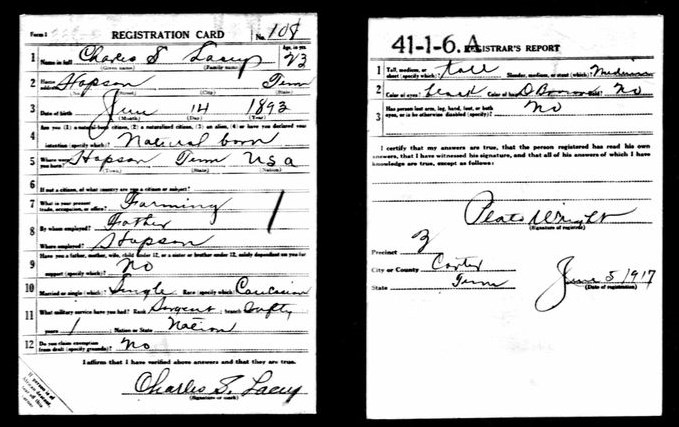 Form 1 REGISTRATION CARD No. 108
1 Name in full Charles S Lacey Age, in yrs. 23
(Given name) (Family name)
2 Home address Hapson Tenn
(No.) (Street) (City) (State)
3 Date of birth June 14 1893
(Month) (Day) (Year)
4 Are you (1) a natural-born citizen, (2) a naturalized citizen, (3) an alien, (4) or have you declared your
intention (specify which)? Natural born
5 Where were you born? Hapson Tenn USa
(Town) (State) (Nation)
6 If not a citizen, of what country are you a citizen or subject?
7 What is your present trade, occupation, or office? Farming
8 By whom employed? Father
Where employed? Hapson
9 Have you a father, mother, wife, child under 12, or a sister or brother under 12, solely dependent on you for
support (specify which)? No
10 Married or single (which)? Single Race (specify which)? Caucasian
11 What military service have you had? Rank Sergent; branch
years 1 Nation or State Nation
12 Do you claim exemption from draft (specify grounds)? No
I affirm that I have verified above answers and that they are true.
Charles S. Lacey
(Signature or mark)
If person is of
African descent,
41-1-6. A REGISTRAR'S REPORT
1 Tall, medium, or short (specify which)? Tall Slender, medium, or stout (which)? Medium
2 Color of eyes? Color of hair? D Brown Bald? No
3 Has person lost arm, leg, hand, foot, or both
eyes, or is he otherwise disabled (specify)? No
I certify that my answers are true, that the person registered has read his own
answers, that I have witnessed his signature, and that all of his answers of which I
have knowledge are true, except as follows:
Wright
(Signature of registrar)
Precinct
City or County Carter
State Tenn
June 5 1917
(Date of registration)